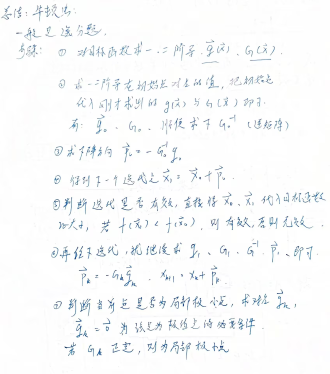 总结：牛顿法.
一般是填分题.
步骤：① 对目标函数求一、二阶导. g(x). G(x).
② 求一二阶导在初始点对应的值，把初始点
代入刚才求出的 g(x) 与 G(x) 即可.
有：g₀、G₀. 顺便求下 G₀⁻¹ (逆矩阵)
③ 求下降方向 p₀ = -G₀⁻¹g₀
④ 得到下一个迭代点 x₁ = x₀ + p₀.
⑤ 判断迭代是否有效，直接将 x₀、x₁ 代入目标函数
比大小，若 f(x₁) < f(x₀)，则有效，否则无效.
⑥ 再往下迭代，就继续求 g₁、G₁、G⁻¹、p₁、即可.
pₖ = -Gₖgₖ. xₖ₊₁ = xₖ + pₖ
⑦ 判断当前点是否为局部极小点，求对应 gₖ，
gₖ = 0 为该点为极值点的必要条件.
若 Gₖ 正定，则为局部极小点